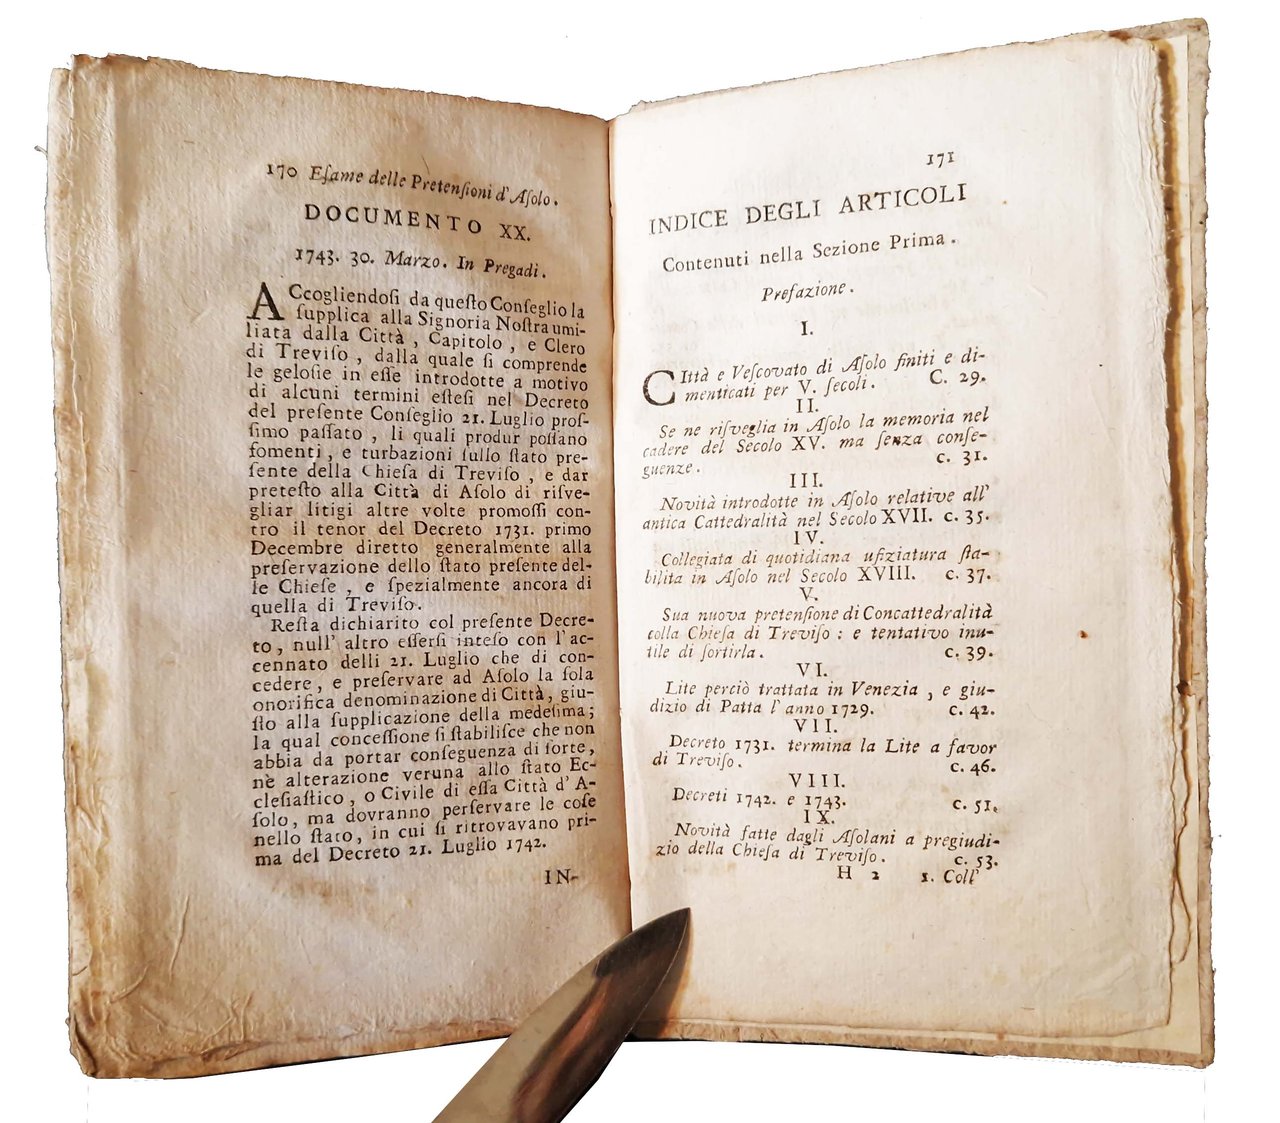 170 Eſame delle Pretenſioni d'Aſolo.
DOCUMENTO XX.
1743. 30. Marzo. In Pregadì.
ACcogliendoſi da queſto Conſeglio la
ſupplica alla Signoria Noſtra umi-
liata dalla Città, Capitolo, e Clero
di Treviſo, dalla quale ſi comprende
le geloſie in eſſe introdotte a motivo
di alcuni termini eſteſi nel Decreto
del preſente Conſeglio 21. Luglio proſ-
ſimo paſſato, li quali produr poſſano
fomenti, e turbazioni ſullo ſtato pre-
ſente della Chieſa di Treviſo, e dar
preteſto alla Città di Aſolo di riſve-
gliar litigi altre volte promoſſi con-
tro il tenor del Decreto 1731. primo
Decembre diretto generalmente alla
preſervazione dello ſtato preſente del-
le Chieſe, e ſpezialmente ancora di
quella di Treviſo.
Reſta dichiarito col preſente Decre-
to, null' altro eſſerſi inteſo con l'ac-
cennato delli 21. Luglio che di con-
cedere, e preſervare ad Aſolo la ſola
onorifica denominazione di Città, giu-
ſto alla ſupplicazione della medeſima;
la qual conceſſione ſi ſtabiliſce che non
abbia da portar conſeguenza di ſorte,
nè alterazione veruna allo ſtato Ec-
cleſiaſtico, o Civile di eſſa Città d'A-
ſolo, ma dovranno perſervare le coſe
nello ſtato, in cui ſi ritrovavano pri-
ma del Decreto 21. Luglio 1742.
IN-
171
INDICE DEGLI ARTICOLI
Contenuti nella Sezione Prima.
Prefazione.
I.
CIttà e Veſcovato di Aſolo finiti e di-
menticati per V. ſecoli. C. 29.
II.
Se ne riſveglia in Aſolo la memoria nel
cadere del Secolo XV. ma ſenza conſe-
guenze. c. 31.
III.
Novità introdotte in Aſolo relative all'
antica Cattedralità nel Secolo XVII. c. 35.
IV.
Collegiata di quotidiana ufiziatura ſta-
bilita in Aſolo nel Secolo XVIII. c. 37.
V.
Sua nuova pretenſione di Concattedralità
colla Chieſa di Treviſo: e tentativo inu-
tile di ſortirla. c. 39.
VI.
Lite perciò trattata in Venezia, e giu-
dizio di Patta l'anno 1729. c. 42.
VII.
Decreto 1731. termina la Lite a favor
di Treviſo. c. 46.
VIII.
Decreti 1742. e 1743. c. 51.
IX.
Novità fatte dagli Aſolani a pregiudi-
zio della Chieſa di Treviſo. c. 53.
H 2 1. Coll'